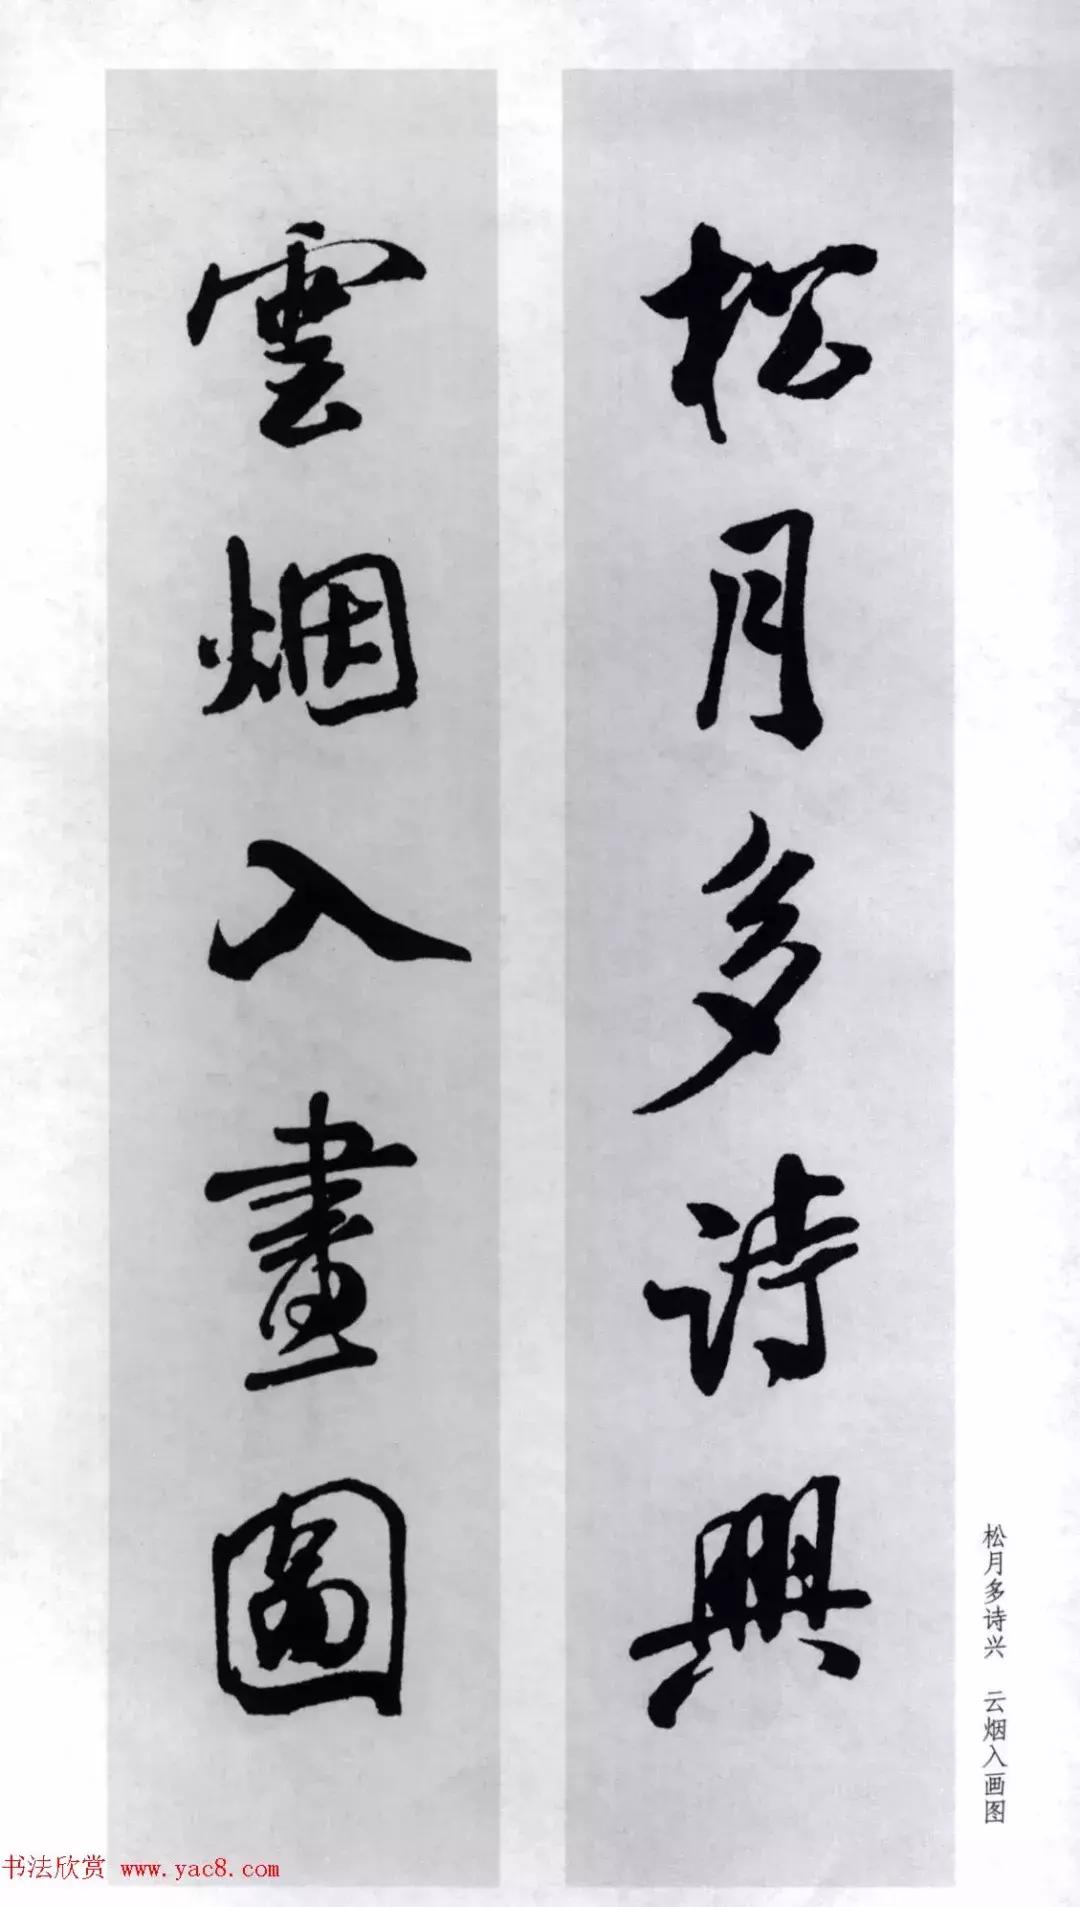 松月多诗興
雲烟入畫圖
松月多诗兴 云烟入画图
书法欣赏 www.yac8.com